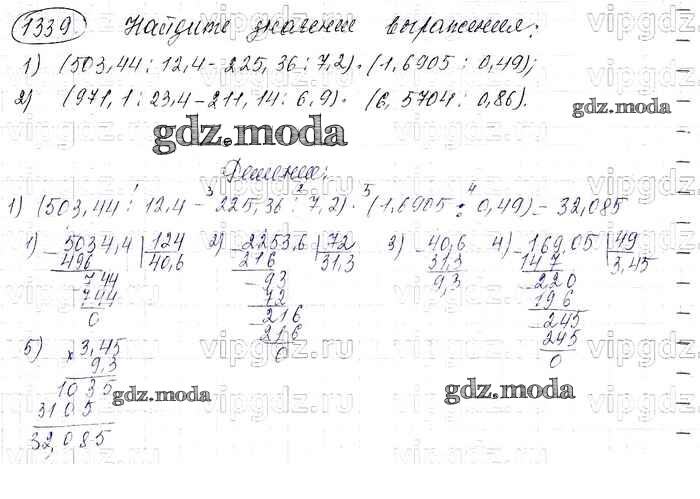 1339 Найдите значение выражения:
1) (503,44 : 12,4 - 225,36 : 7,2) · (1,6905 : 0,49);
2) (971,1 : 23,4 - 211,14 : 6,9) · (6,5704 : 0,86).
gdz.moda
gdz.moda
Решение:
1 3 2 5 4
1) (503,44 : 12,4 - 225,36 : 7,2) · (1,6905 : 0,49) = 32,085
1) 5034,4 124 2) 2253,6 72 3) 40,6 4) 169,05 49
496 40,6 216 31,3 31,3 147 3,45
744 93 9,3 220
744 72 196
0 216 245
216 245
0 0
5) × 3,45
9,3
1035
3105
32,085
gdz.moda
gdz.moda
vipgdz.ru